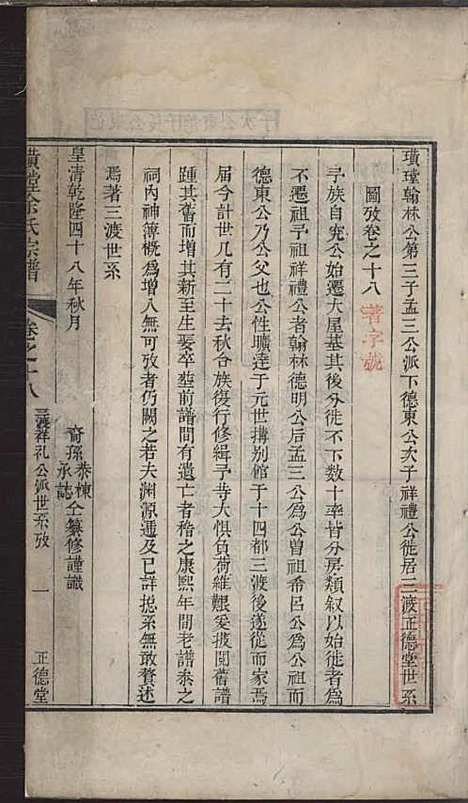 璜墥翰林公第三子孟三公派下德東公次子祥禮公徙居三渡正德堂世系
圖攷卷之十八 著字號
予族自兖公始遷大屋基其後分徙不下數十率皆分房類叙以始徙者為
不遷祖予祖祥禮公者翰林德明公后孟三公為公曾祖希吕公為公祖而
德東公乃公父也公性曠達于元世搆别館于十四都三渡後遂從而家焉
届今計世几有二十去秋合族復行修緝予寺大惧負荷維艱爰披閲舊譜
踵其舊而增其新至生娶卒塟前譜間有遺亡者稽之康熙年間老譜叅之
祠内神簿概為增入無可攷者仍闕之若夫渊源遞及已詳捴系無敢贅述
焉著三渡世系
皇清乾隆四十八年秋月
裔孫 恭棟 承誌 仝纂修謹識
璜墥余氏宗譜 卷之十八 三渡祥礼公派世系攷 一 正德堂